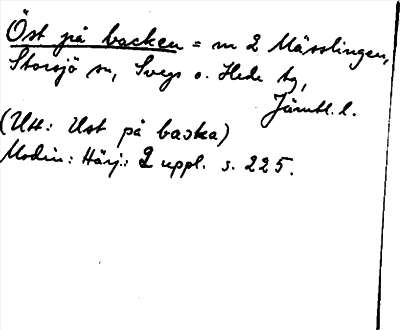 Öst på backen = m 2 Mässlingen,
Storsjö sn, Svegs o. Hede tg,
Jämtl. l.
(Utt: Ust på backa)
Modin: Härj.: 2 uppl. s. 225.